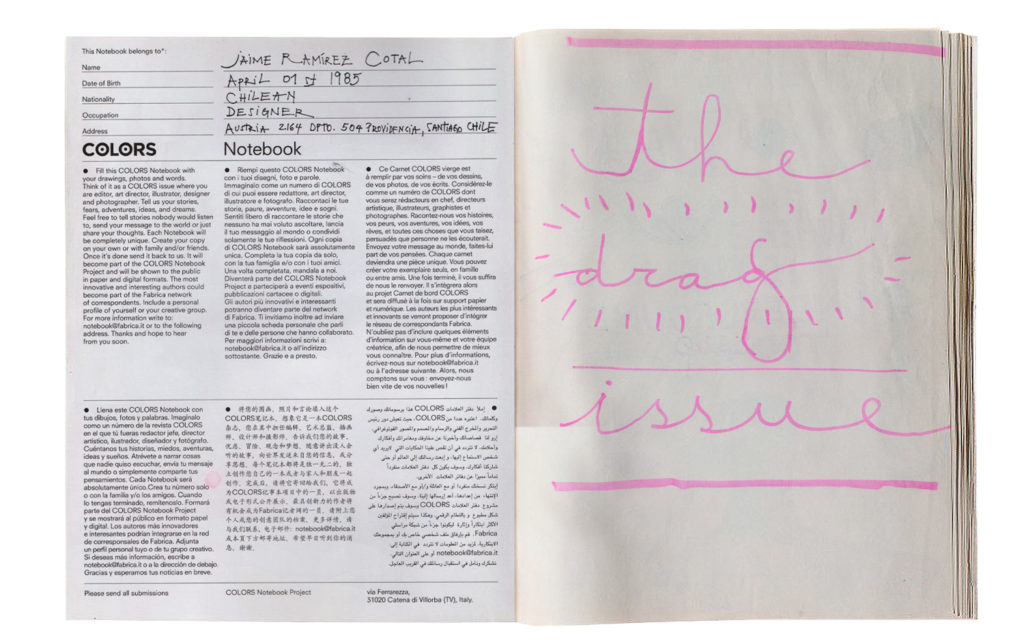 This Notebook belongs to*:
Name JAIME RAMÍREZ COTAL
Date of Birth APRIL 01 st 1985
Nationality CHILEAN
Occupation DESIGNER
Address AUSTRIA 2164 DPTO. 504 PROVIDENCIA, SANTIAGO CHILE
COLORS Notebook
● Fill this COLORS Notebook with
your drawings, photos and words.
Think of it as a COLORS issue where you
are editor, art director, illustrator, designer
and photographer. Tell us your stories,
fears, adventures, ideas, and dreams.
Feel free to tell stories nobody would listen
to, send your message to the world or just
share your thoughts. Each Notebook will
be completely unique. Create your copy
on your own or with family and/or friends.
Once it's done send it back to us. It will
become part of the COLORS Notebook
Project and will be shown to the public
in paper and digital formats. The most
innovative and interesting authors could
become part of the Fabrica network
of correspondents. Include a personal
profile of yourself or your creative group.
For more information write to:
notebook@fabrica.it or to the following
address. Thanks and hope to hear
from you soon.
● Riempi questo COLORS Notebook
con i tuoi disegni, foto e parole.
Immaginalo come un numero di COLORS
di cui puoi essere redattore, art director,
illustratore e fotografo. Raccontaci le tue
storie, paure, avventure, idee e sogni.
Sentiti libero di raccontare le storie che
nessuno ha mai voluto ascoltare, lancia
il tuo messaggio al mondo o condividi
solamente le tue riflessioni. Ogni copia
di COLORS Notebook sarà assolutamente
unica. Completa la tua copia da solo,
con la tua famiglia e/o con i tuoi amici.
Una volta completata, mandala a noi.
Diventerà parte del COLORS Notebook
Project e parteciperà a eventi espositivi,
pubblicazioni cartacee o digitali.
Gli autori più innovativi e interessanti
potranno diventare parte del network
di Fabrica. Ti invitiamo inoltre ad inviare
una piccola scheda personale che parli
di te e delle persone che hanno collaborato.
Per maggiori informazioni scrivi a:
notebook@fabrica.it o all'indirizzo
sottostante. Grazie e a presto.
● Ce Carnet COLORS vierge est
à remplir par vos soins – de vos dessins,
de vos photos, de vos écrits. Considérez-le
comme un numéro de COLORS dont
vous serez rédacteurs en chef, directeurs
artistique, illustrateurs, graphistes et
photographes. Racontez-nous vos histoires,
vos peurs, vos aventures, vos idées, vos
rêves, et toutes ces choses que vous taisez,
persuadés que personne ne les écouterait.
Envoyez votre message au monde, faites-lui
part de vos pensées. Chaque carnet
deviendra une pièce unique. Vous pouvez
créer votre exemplaire seuls, en famille
ou entre amis. Une fois terminé, il vous suffira
de nous le renvoyer. Il s'intégrera alors
au projet Carnet de bord COLORS
et sera diffusé à la fois sur support papier
et numérique. Les auteurs les plus intéressants
et innovants se verront proposer d'intégrer
le réseau de correspondants Fabrica.
N'oubliez pas d'inclure quelques éléments
d'information sur vous-même et votre équipe
créatrice, afin de nous permettre de mieux
vous connaître. Pour plus d'informations,
écrivez-nous sur notebook@fabrica.it
ou à l'adresse suivante. Alors, nous
comptons sur vous : envoyez-nous
bien vite de vos nouvelles !
● Llena este COLORS Notebook con
tus dibujos, fotos y palabras. Imagínalo
como un número de la revista COLORS
en el que tú fueras redactor jefe, director
artístico, ilustrador, diseñador y fotógrafo.
Cuéntanos tus historias, miedos, aventuras,
ideas y sueños. Atrévete a narrar cosas
que nadie quiso escuchar, envía tu mensaje
al mundo o simplemente comparte tus
pensamientos. Cada Notebook será
absolutamente único.Crea tu número solo
o con la familia y/o los amigos. Cuando
lo tengas terminado, remítenoslo. Formará
parte del COLORS Notebook Project
y se mostrará al público en formato papel
y digital. Los autores más innovadores
e interesantes podrían integrarse en la red
de corresponsales de Fabrica. Adjunta
un perfil personal tuyo o de tu grupo creativo.
Si deseas más información, escribe a
notebook@fabrica.it o a la dirección de debajo.
Gracias y esperamos tus noticias en breve.
● 将您的图画，照片和言论填入这个
COLORS笔记本。想象它是一本COLORS
杂志，您在其中担任编辑、艺术总监、插画
师、设计师和摄影师。告诉我们您的故事、
忧虑、冒险、观念和梦想。随意讲出没人会
听的故事，向世界发送来自您的信息，或分
享思想。每个笔记本都将是独一无二的。独
立创作您自己的一本或者与家人和朋友一起
创作。完成后，请将它寄回给我们。它将成
为COLORS记事本项目中的一员，以出版物
或电子形式公开展示。最具创新力的作者将
有机会成为Fabrica记者网的一员。请附上您
个人或您的创意团队的档案。更多详情，请
与我们联系，电子邮件: notebook@fabrica.it
或本页下方邮寄地址。希望早日听到你的消
息。谢谢。
● إملأ دفتر العلامات COLORS هذا برسوماتك وصورك
COLORS
COLORS
Fabrica
notebook@fabrica.it أو على العنوان التالي
Please send all submissions
COLORS Notebook Project
via Ferrarezza,
31020 Catena di Villorba (TV), Italy.
the
drag
issue